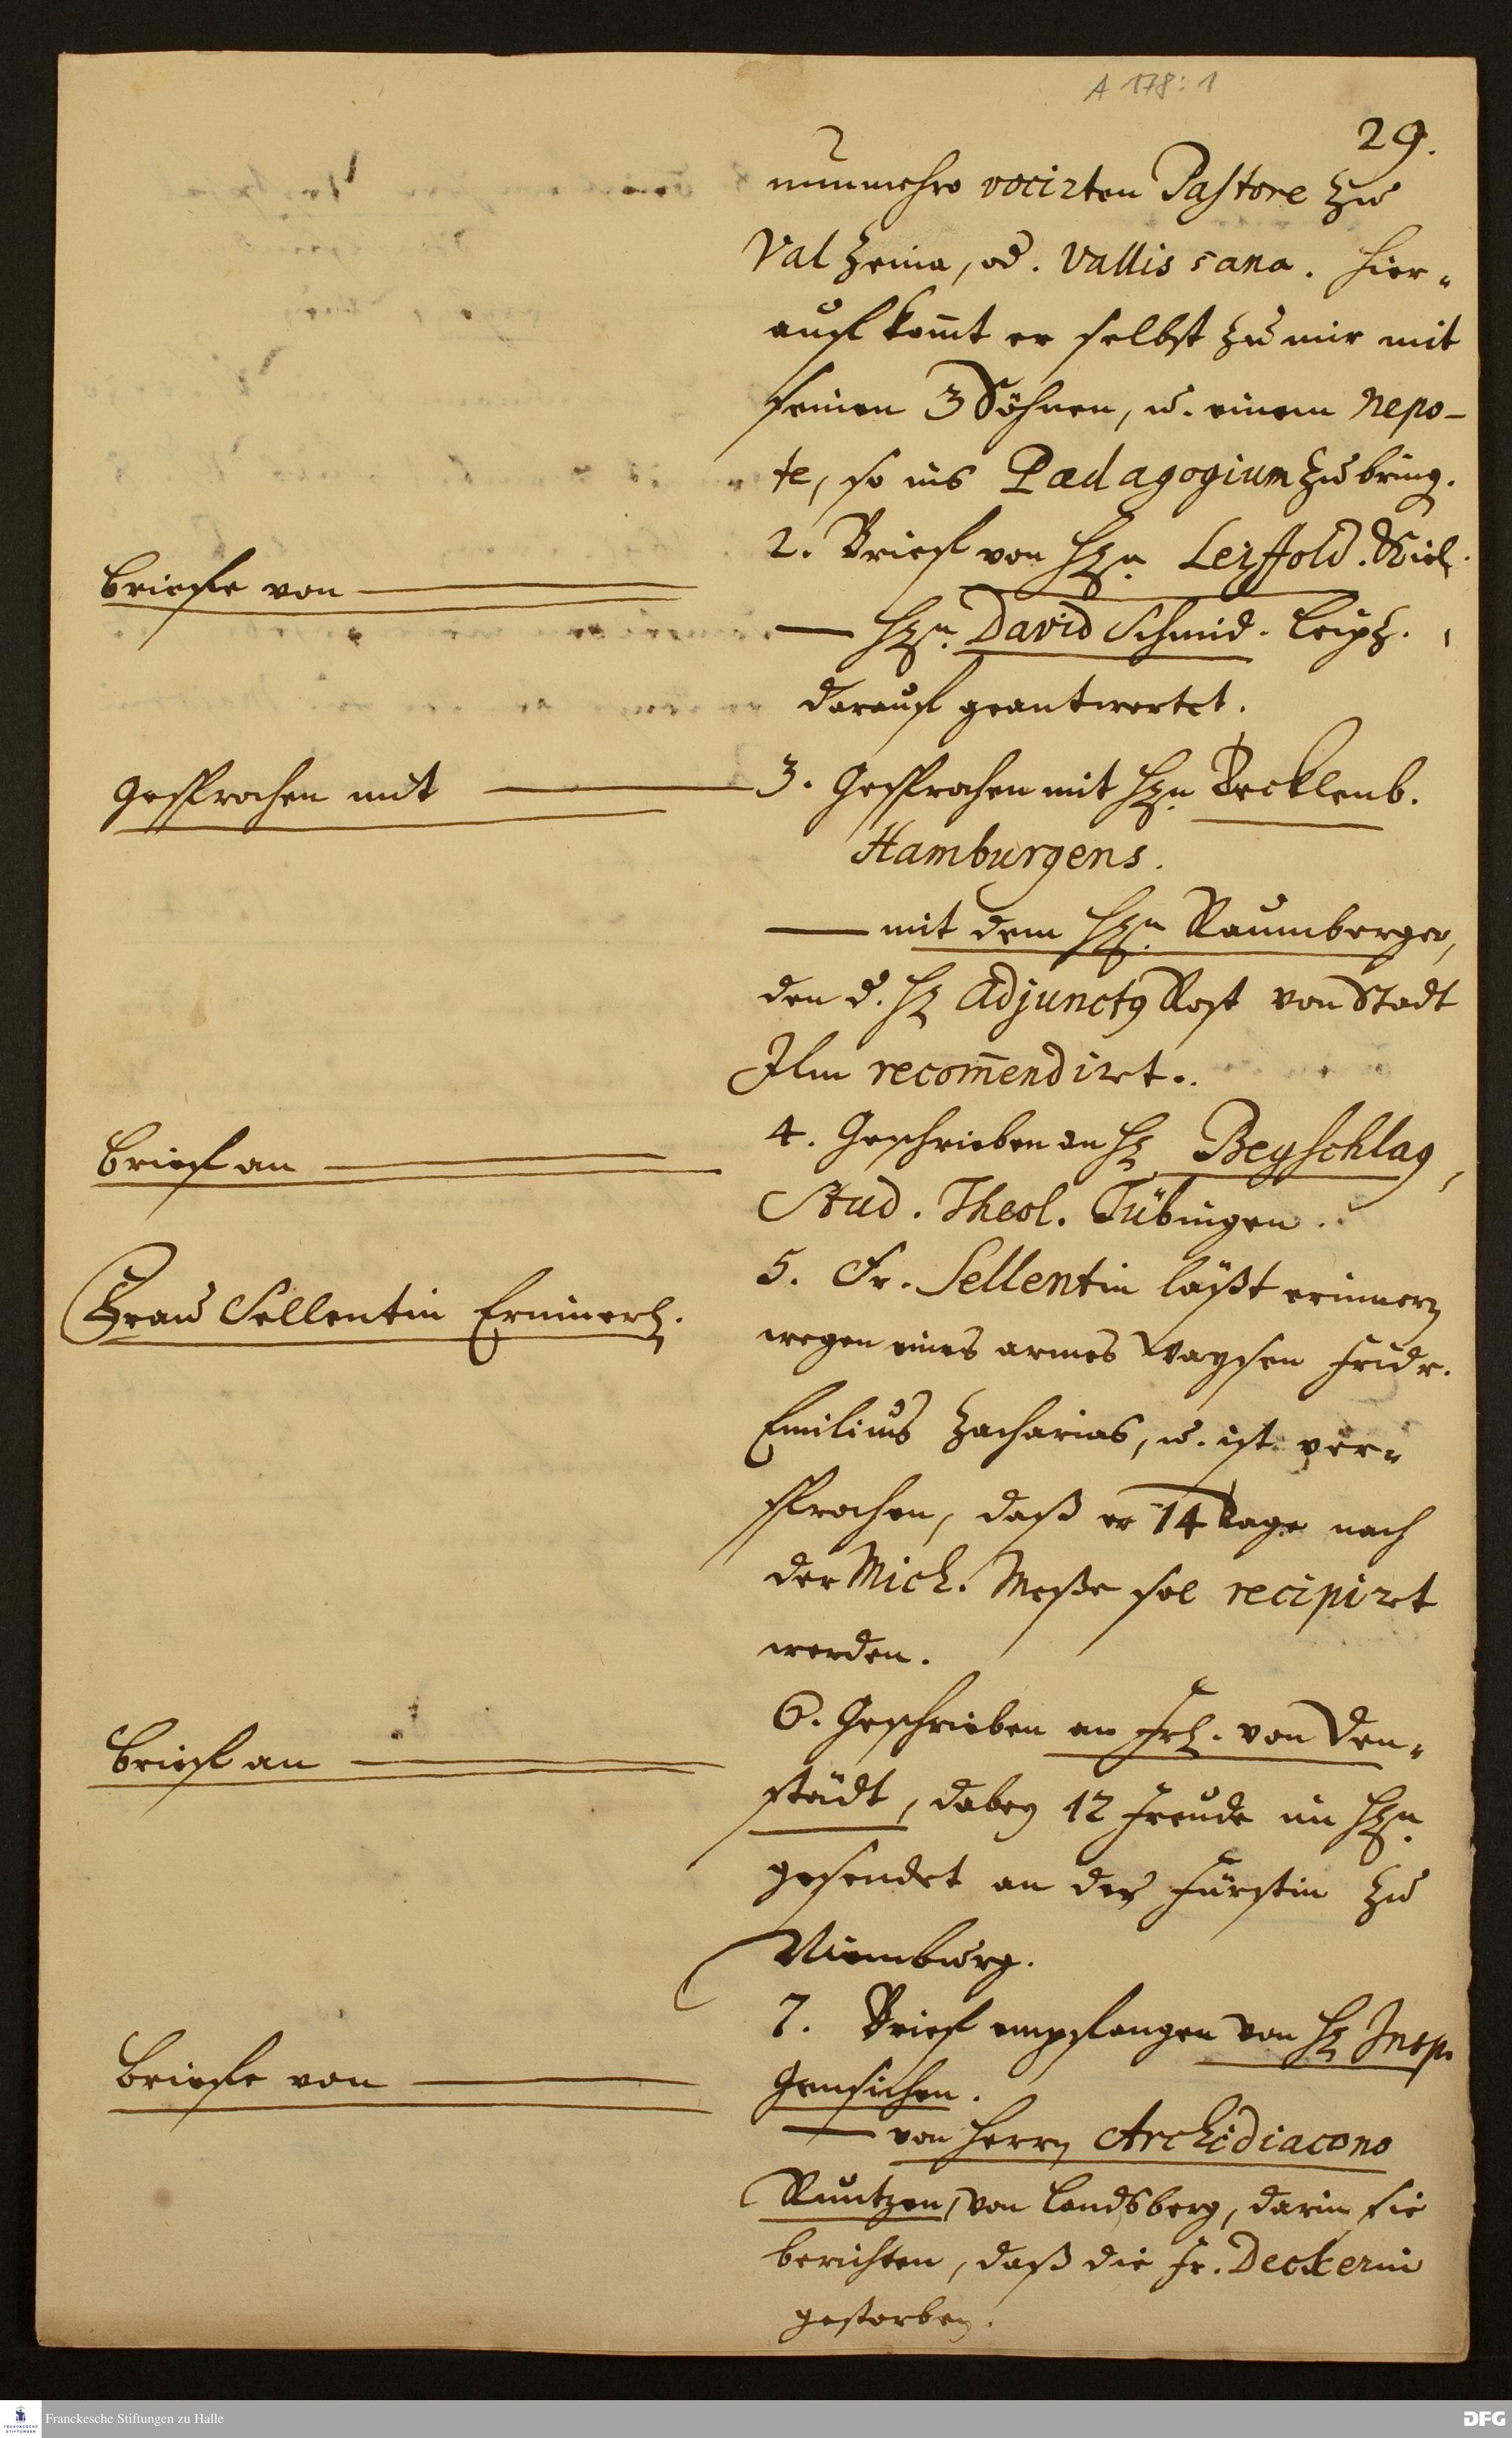 A 178: 1
29.
nunmehro vocirten Pastore zu
Valzeina, od. Vallis sana. Hier-
auf kom̄t er selbst zu mir mit
seinen 3 Söhnen, u. einem Nepo-
te, so ins Pædagogium zu bring.
Briefe von
2. Brief von Hrn. Kiel.
— Hrn. David Schmid. Leipz.
darauf geantwortet.
Gesprochen mit
3. Gesprochen mit Hrn. Tecklenb.
Hamburgens.
— mit dem Hrn. Raumberger,
den d. Hr. Adjunctus Rost von Stadt
Ilm recom̄endirt.
Brief an
4. Geschrieben an Hr. Beyschlag,
Stud. Theol. Tübingen.
Frau Sellentin Erinner.
5. Fr. Sellentin läßt erinnern
wegen eines armes Waysen Fridr.
Emilius Zacharias, u. ist ver-
sprochen, daß er 14 Tage nach
der Mich. Meße sol recipirt
werden.
Brief an
6. Geschrieben an Frl. von Den-
städt, dabey 12 Freude im Hrn.
gesendet an der Fürstin zu
Niemburg.
Briefe von
7. Brief empfangen von Hr. Insp.
Gensichen.
— von Herrn Archidiacono
Runtzen, von Landsberg, darin sie
berichten, daß die Fr. Deckerin
gestorben.
Franckesche Stiftungen zu Halle
DFG